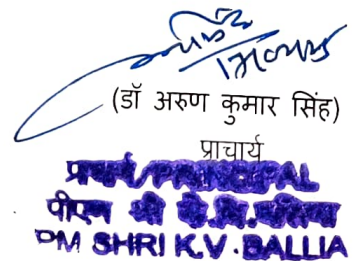 (डॉ अरुण कुमार सिंह)
प्राचार्य
प्राचार्य/PRINCIPAL
पीएम श्री के.वि. बलिया
PM SHRI K.V. BALLIA